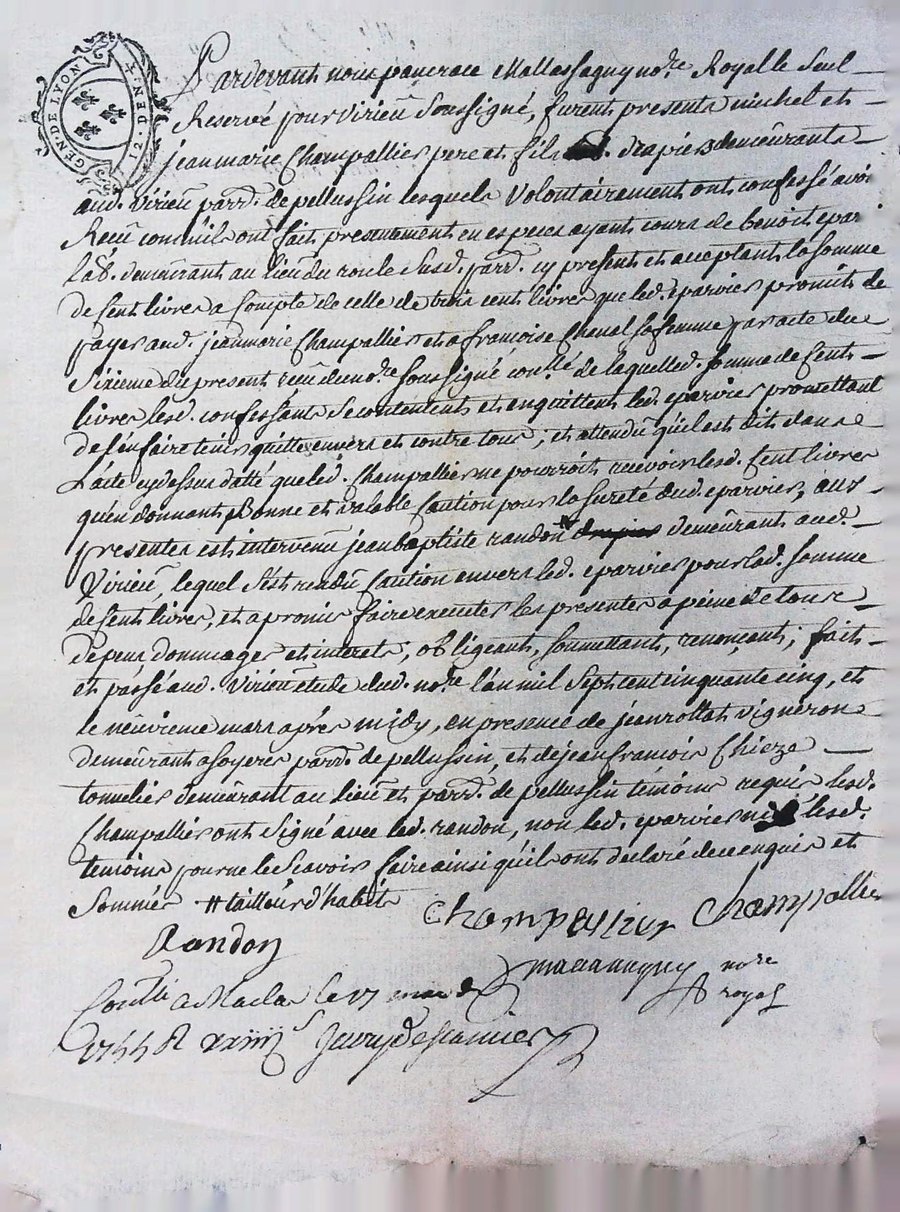 GEN. DE LYON 12. DEN. X.
Pardevant nous pancrace Mallassagny no.re Royal le Seul
Reservé pour Virieu Soussigné, furent presents michel et
jeanmarie Champallier pere et fils drapiers demeurants
aud. Virieu parr. de pellussin lesquels Volontairement ont confessé avoir
Receu comm'ils ont fait presentement en especes ayant cours de benoit epar
demeurant au lieu du roule Susd. parr. cy present et acceptant la somme
de Cent livres a Compte de celle de trois cent livres que led. eparvier promit de
payer aud. jeanmarie Champallier et a francoise Chanal sa femme par acte du
Sixieme du present receu du no.re Soussigné con.lé de laquelle d. somme de Cent
livres lesd. confessants Se contentent et en quittent led. eparvier promettant
de l'en faire tenir quitte envers et contre tous; et attendu qu'il est dit dans
L'acte cydessus datté que led. Champallier ne pourroit recevoir lesd. Cent livres
qu'en donnant Bonne et valable Caution pour la sureté dud. eparvier, aux
presentes est intervenu jean baptiste randon # demeurant aud.
Virieu, lequel S'est rendu Caution envers led. eparvier pour lad. somme
de Cent livres, et a promis faire executer les presentes a peine de tous
depens dommages et interets, obligeants, soumettants, renonçants; fait
et passé aud. Virieu etude dud. no.re l'an mil Sept cent cinquante cinq, et
le neuvieme mars après midy, en presence de jean rollat vigneron
demeurant a Soyeres parr. de pellussin, et de jean francois Chieze
tonnelier demeurant au Lieu et parr. de pellussin temoins requis lesd.
Champallier ont Signé avec led. randon, non led. eparvier ni lesd.
temoins pour ne le Scavoir faire ainsi qu'ils ont declaré de ce enquis et
Sommés # tailleur d'habits
Champallier Champallier
Randon
Mallassagny no.re
royal
Con.llé a Maclas le 17 mars
1755 R xxiiii s